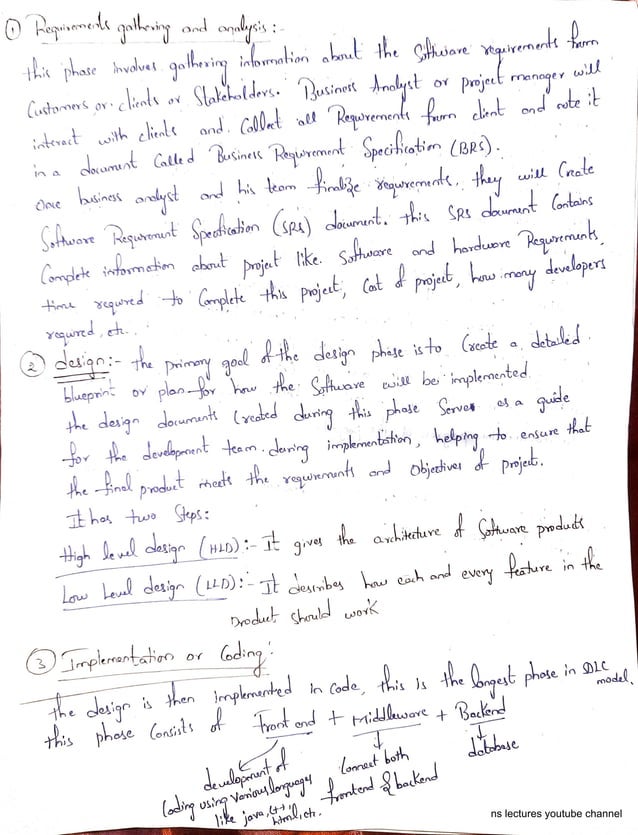 ① Requirements gathering and analysis :-
this phase involves gathering information about the Software requirements from
Customers or clients or Stakeholders. Business Analyst or project manager will
interact with clients and Collect all Requirements from client and note it
in a document Called Business Requirement Specification (BRS).
Once business analyst and his team finalize requirements, they will Create
Software Requirement Specification (SRS) document. this SRS document Contains
Complete information about project like Software and hardware Requirements,
time required to Complete this project, Cost of project, how many developers
required, etc..
② design:- the primary goal of the design phase is to Create a detailed
blueprint or plan for how the Software will be implemented.
the design documents Created during this phase Serves as a guide
for the development team during implementation, helping to ensure that
the final product meets the requirements and Objectives of project.
It has two Steps:
High level design (HLD):- It gives the architecture of Software products
Low Level design (LLD):- It describes how each and every feature in the
Product should work
③ Implementation or Coding:
the design is then implemented in code, this is the longest phase in DLC model.
this phase Consists of Front end + Middleware + Backend
development of
Coding using various languages
like java, C++,
html, etc.
Connect both
frontend & backend
database
ns lectures youtube channel